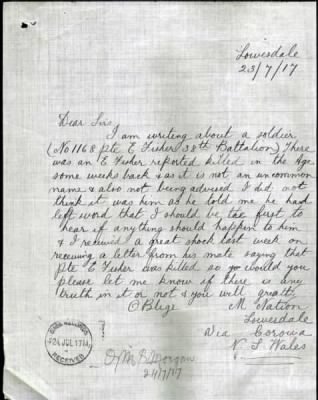 Lowesdale
23/7/17
Dear Sir,
I am writing about a soldier
(No 1168 Pte E Fisher 38th Battalion) There
was an E Fisher reported killed in the Age
some weeks back & as it is not an uncommon
name & also not being advised I did not
think it was him as he told me he had
left word that I should be the first to
hear if anything should happen to him
& I received a great shock last week on
receiving a letter from his mate saying that
Pte E Fisher was killed so yo would you
please let me know if there is any
truth in it or not & you will greatly
Oblige M. Nation
Lowesdale
Via Corowa
N. S. Wales
24 JUL 1917
RECEIVED
24/7/17